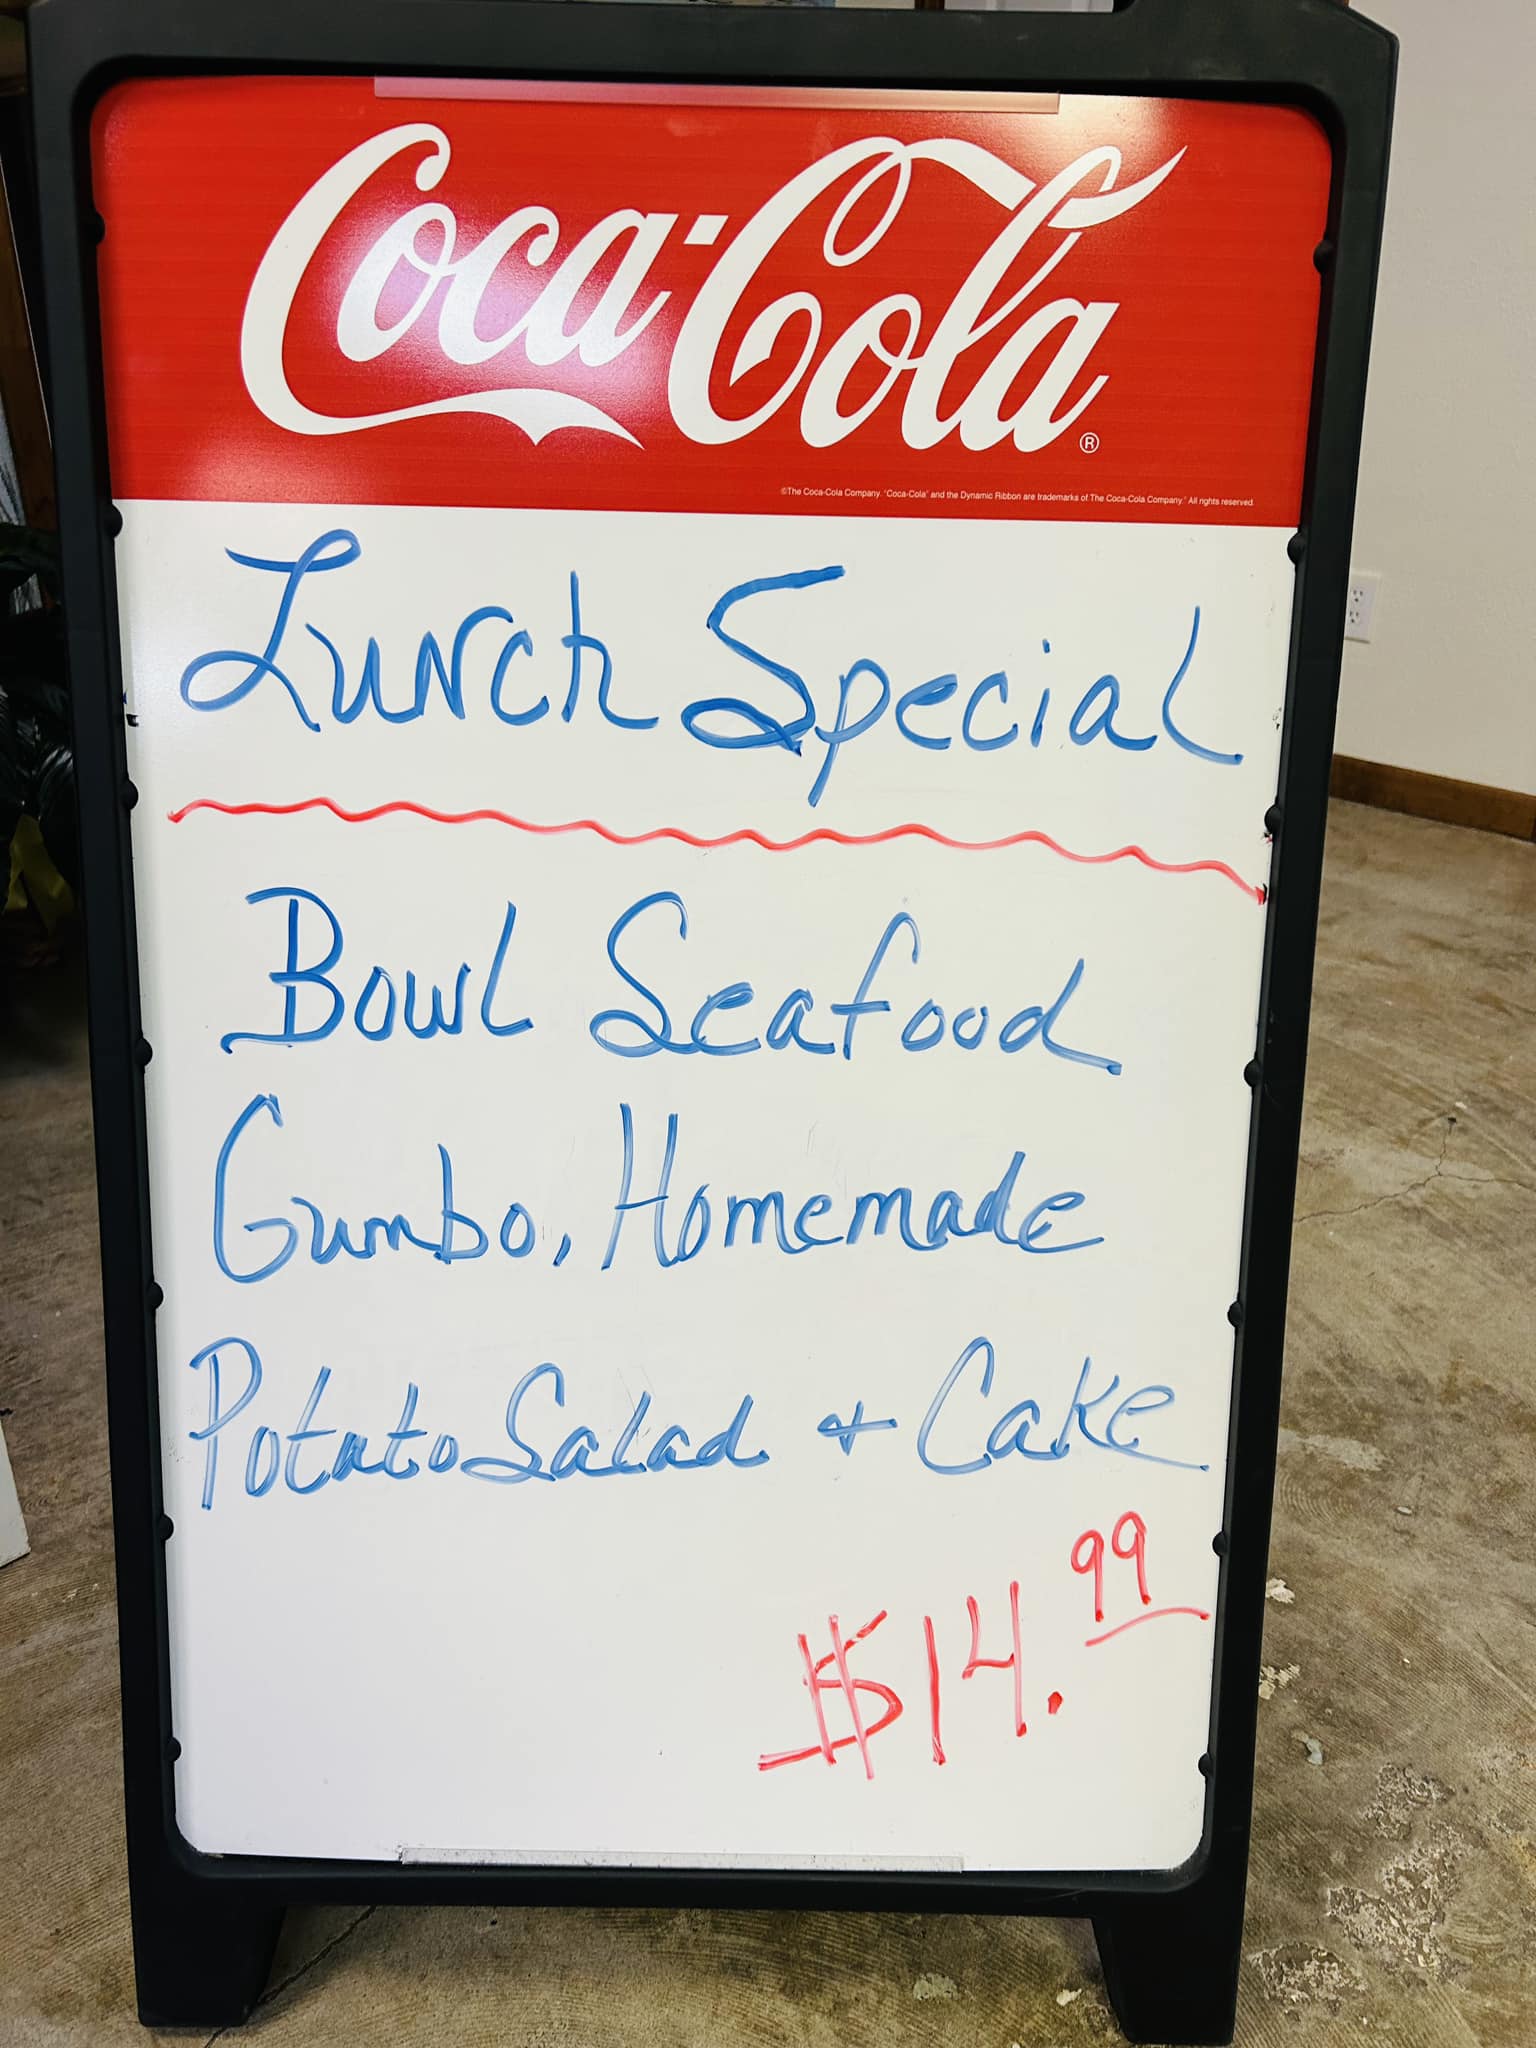 Coca-Cola®
©The Coca-Cola Company. "Coca-Cola" and the Dynamic Ribbon are trademarks of The Coca-Cola Company. All rights reserved.
Lunch Special
Bowl Seafood
Gumbo, Homemade
Potato Salad + Cake
$14.99